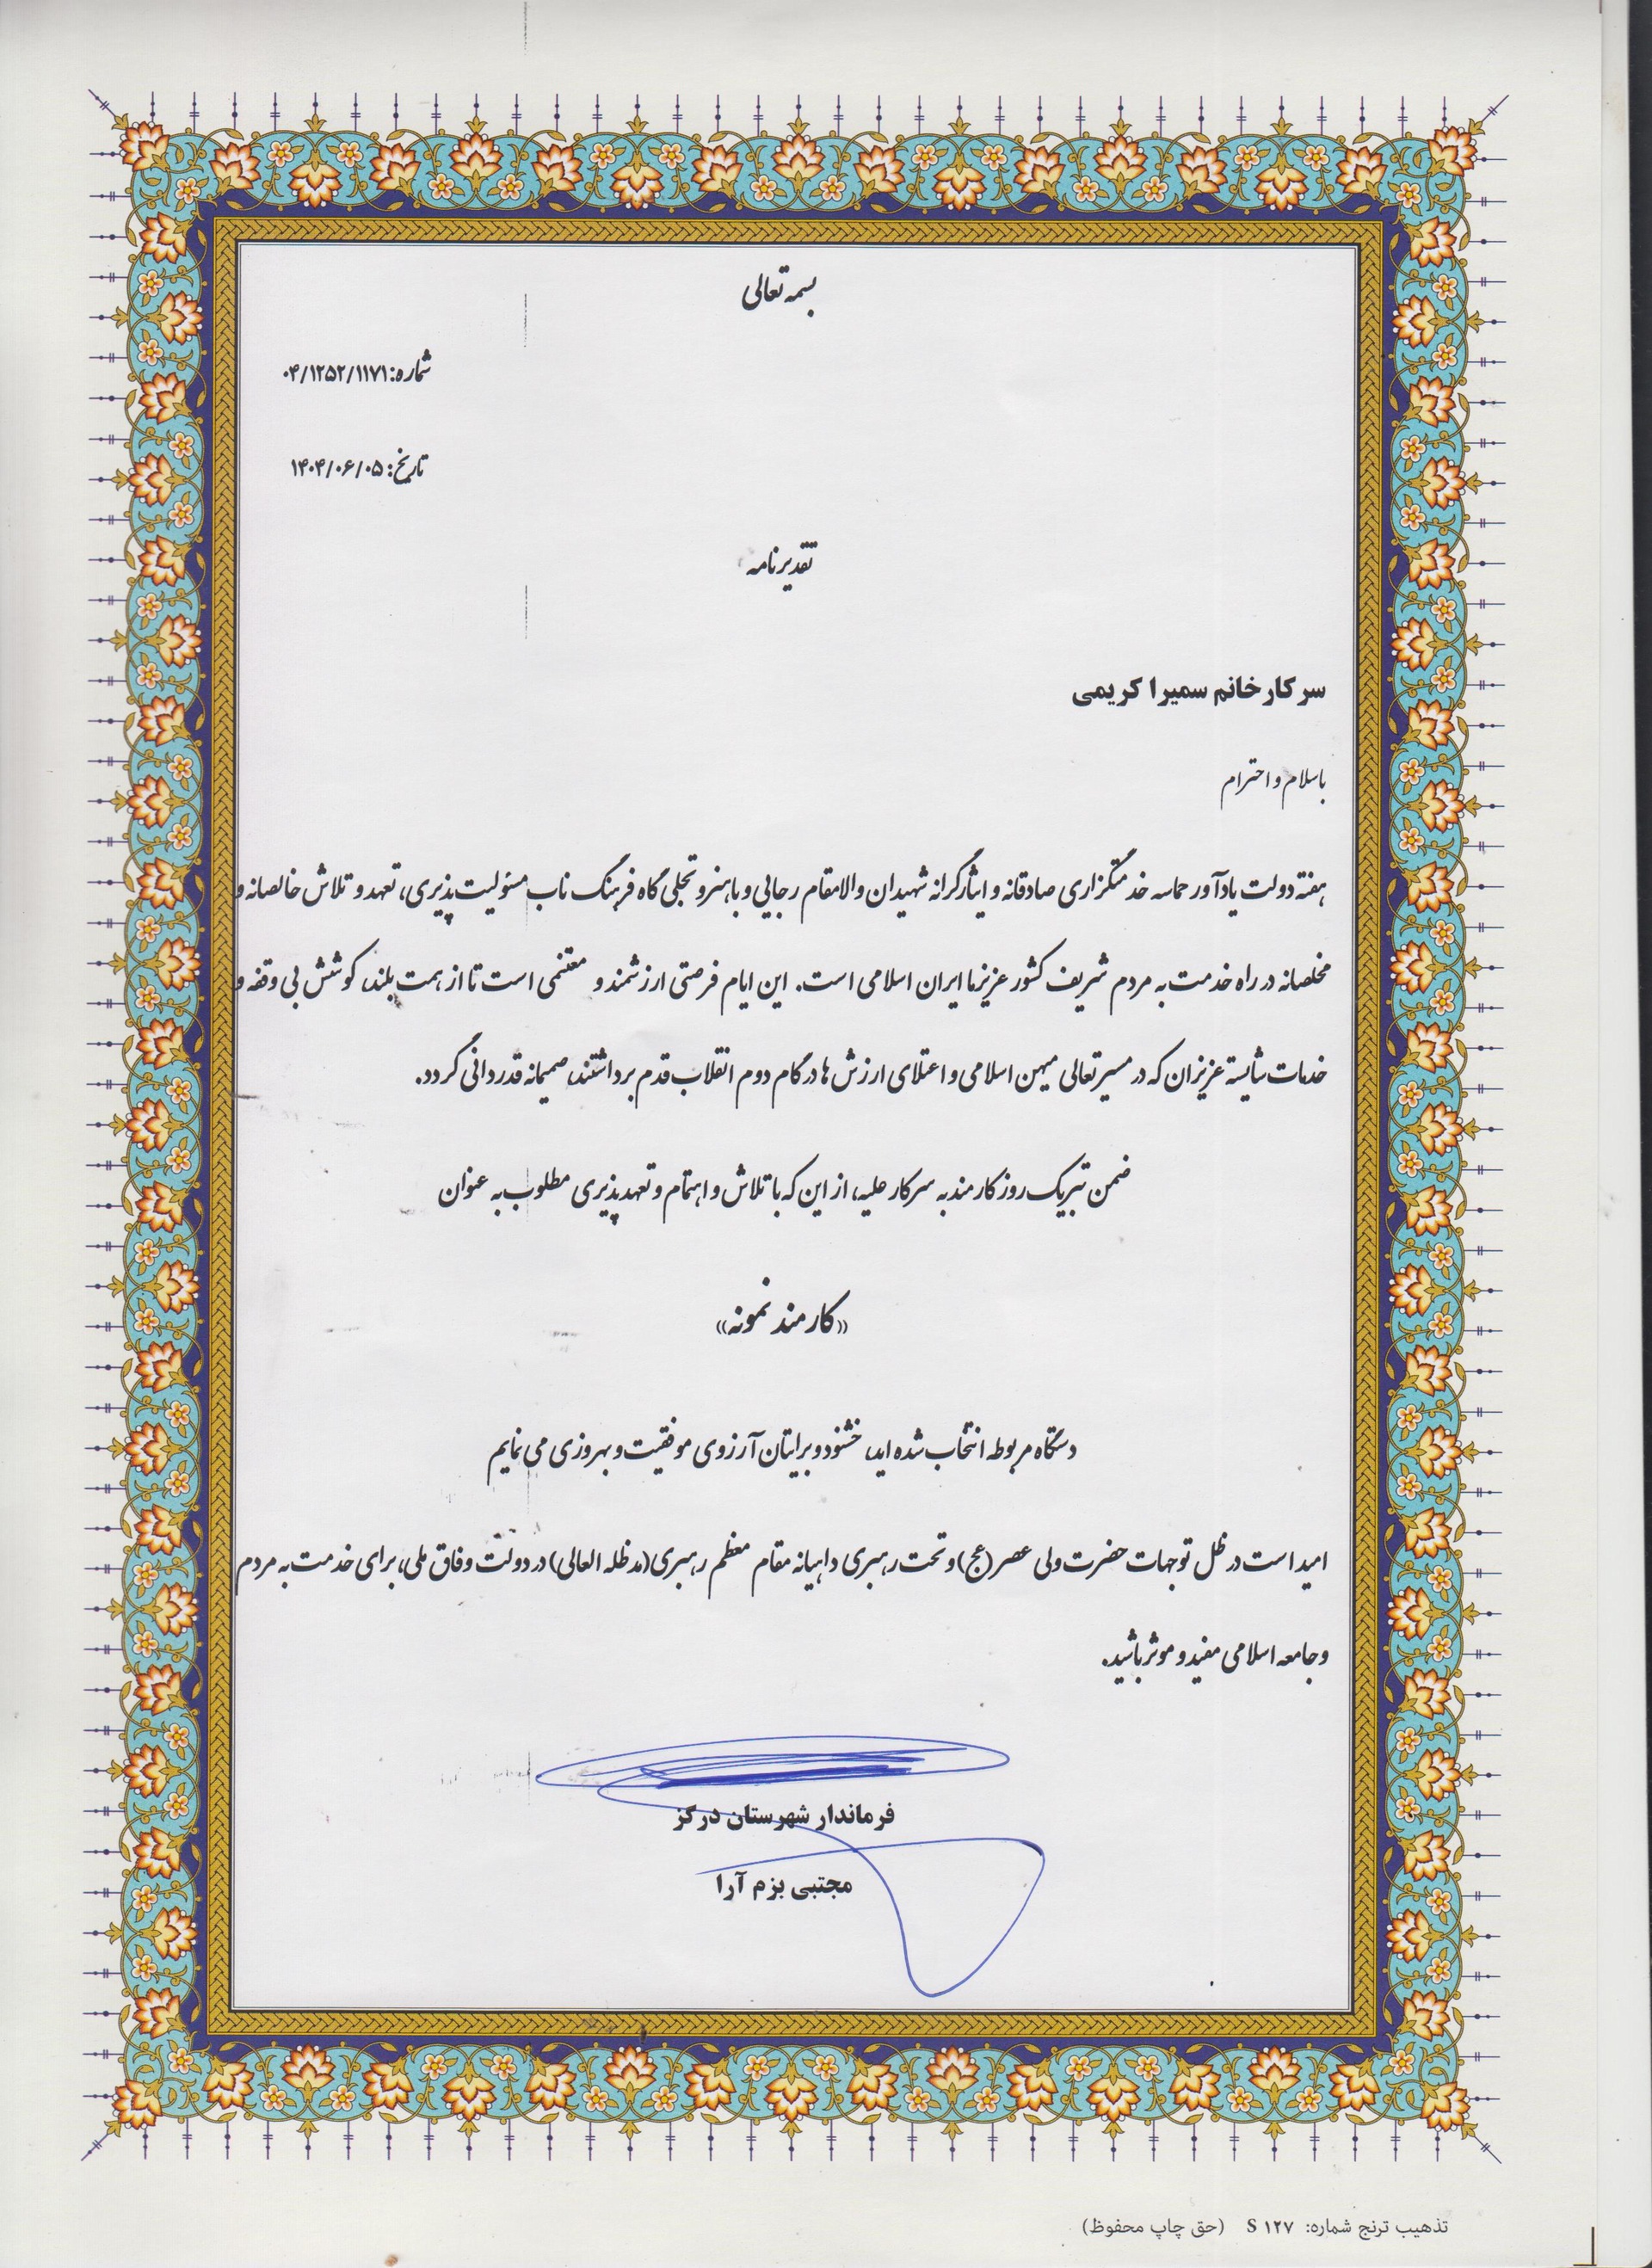 بسمه تعالی
شماره: ۰۴/۱۲۵۲/۱۱۷۱
تاریخ: ۱۴۰۴/۰۶/۰۵
تقدیرنامه
سرکار خانم سمیرا کریمی
با سلام و احترام
هفته دولت یادآور حماسه خدمتگزاری صادقانه و ایثارگرانه شهیدان والامقام رجایی و باهنر و تجلی گاه فرهنگ ناب مسئولیت پذیری، تعهد و تلاش خالصانه و
مخلصانه در راه خدمت به مردم شریف کشور عزیزما ایران اسلامی است. این ایام فرصتی ارزشمند و مغتنمی است تا از همت بلند، کوشش بی وقفه و
خدمات شایسته عزیزان که در مسیر تعالی میهن اسلامی و اعتلای ارزش ها در گام دوم انقلاب قدم برداشتند، صمیمانه قدردانی گردد.
ضمن تبریک روز کارمند به سرکار علیه، از این که با تلاش و اهتمام و تعهد پذیری مطلوب به عنوان
«کارمند نمونه»
دستگاه مربوطه انتخاب شده اید، خشنود و برایتان آرزوی موفقیت و بهروزی می نمایم
امید است در ظل توجهات حضرت ولی عصر (عج) و تحت رهبری داهیانه مقام معظم رهبری (مدظله العالی) در دولت وفاق ملی، برای خدمت به مردم
و جامعه اسلامی مفید و موثر باشید.
فرماندار شهرستان درگز
مجتبی بزم آرا
تذهیب ترنج شماره: S ۱۲۷ (حق چاپ محفوظ)